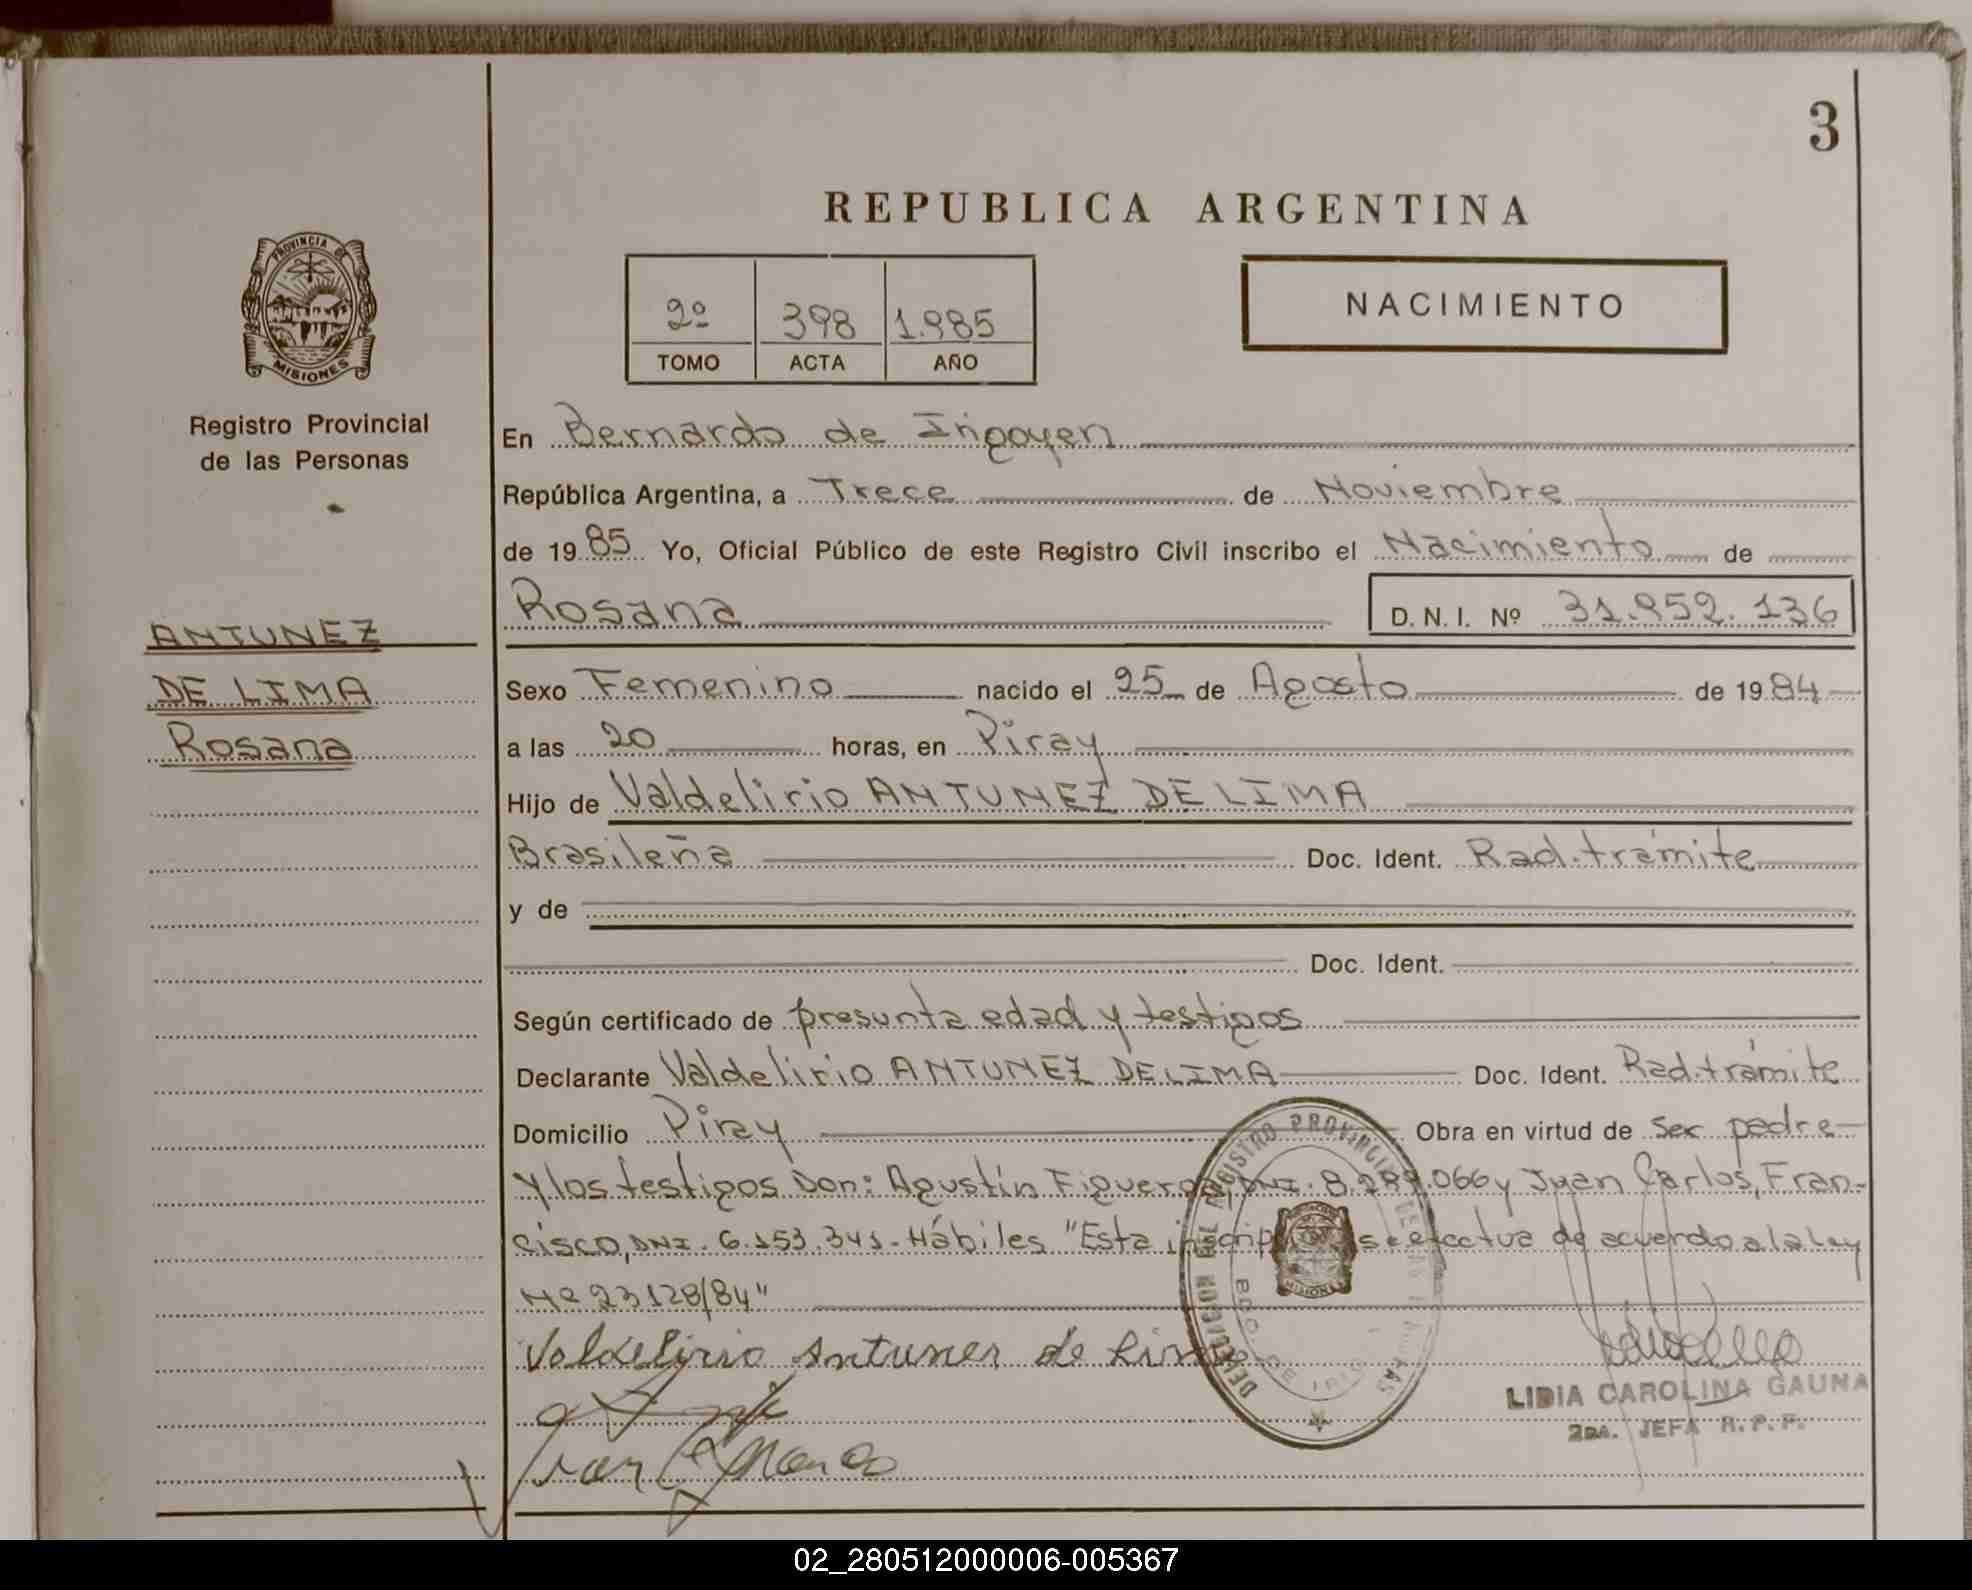 3
REPUBLICA ARGENTINA
PROVINCIA DE
MISIONES
2º 398 1.985
TOMO ACTA AÑO
NACIMIENTO
Registro Provincial
de las Personas
En Bernardo de Irigoyen
República Argentina, a Trece de Noviembre
de 1985 Yo, Oficial Público de este Registro Civil inscribo el Nacimiento de
Rosana D. N. I. Nº 31.952.136
ANTUNEZ
DE LIMA
Rosana
Sexo Femenino nacido el 25 de Agosto de 1984
a las 20 horas, en Piray
Hijo de Valdelirio ANTUNEZ DE LIMA
Brasileña Doc. Ident. Rad. trámite
y de
Doc. Ident.
Según certificado de presunta edad y testigos
Declarante Valdelirio ANTUNEZ DE LIMA Doc. Ident. Rad. trámite
Domicilio Piray Obra en virtud de ser padre
y los testigos Don: Agustín Figueroa, DNI. 8. .066 y Juan Carlos, Fran-
cisco, DNI. 6.153.341.- Hábiles "Esta inscripción se efectua de acuerdo a la ley
Nº 23128/84"
Valdelirio Antunes de Lima
REGISTRO PROVINCIAL DE LAS PERSONAS
MISIONES
LIDIA CAROLINA GAUNA
2DA. JEFA R. P. P.
02_280512000006-005367